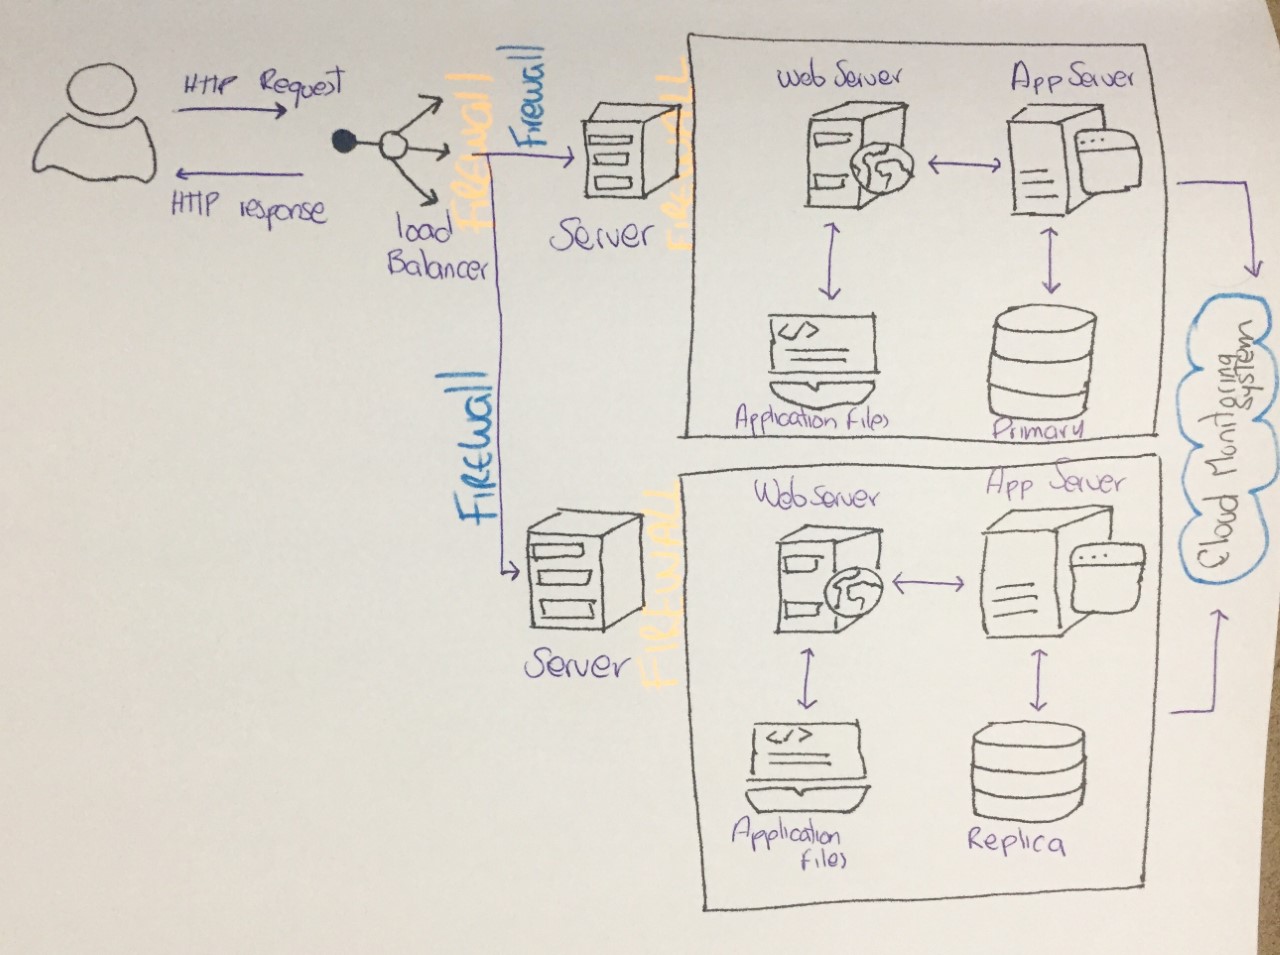 HTTP Request
HTTP response
load
Balancer
FIREWall
Firewall
Server
FIREWALL
Web Server
App Server
Application Files
Primary
FIREWall
Server
FIREWALL
Web Server
App Server
Application
files
Replica
Cloud Monitoring
System